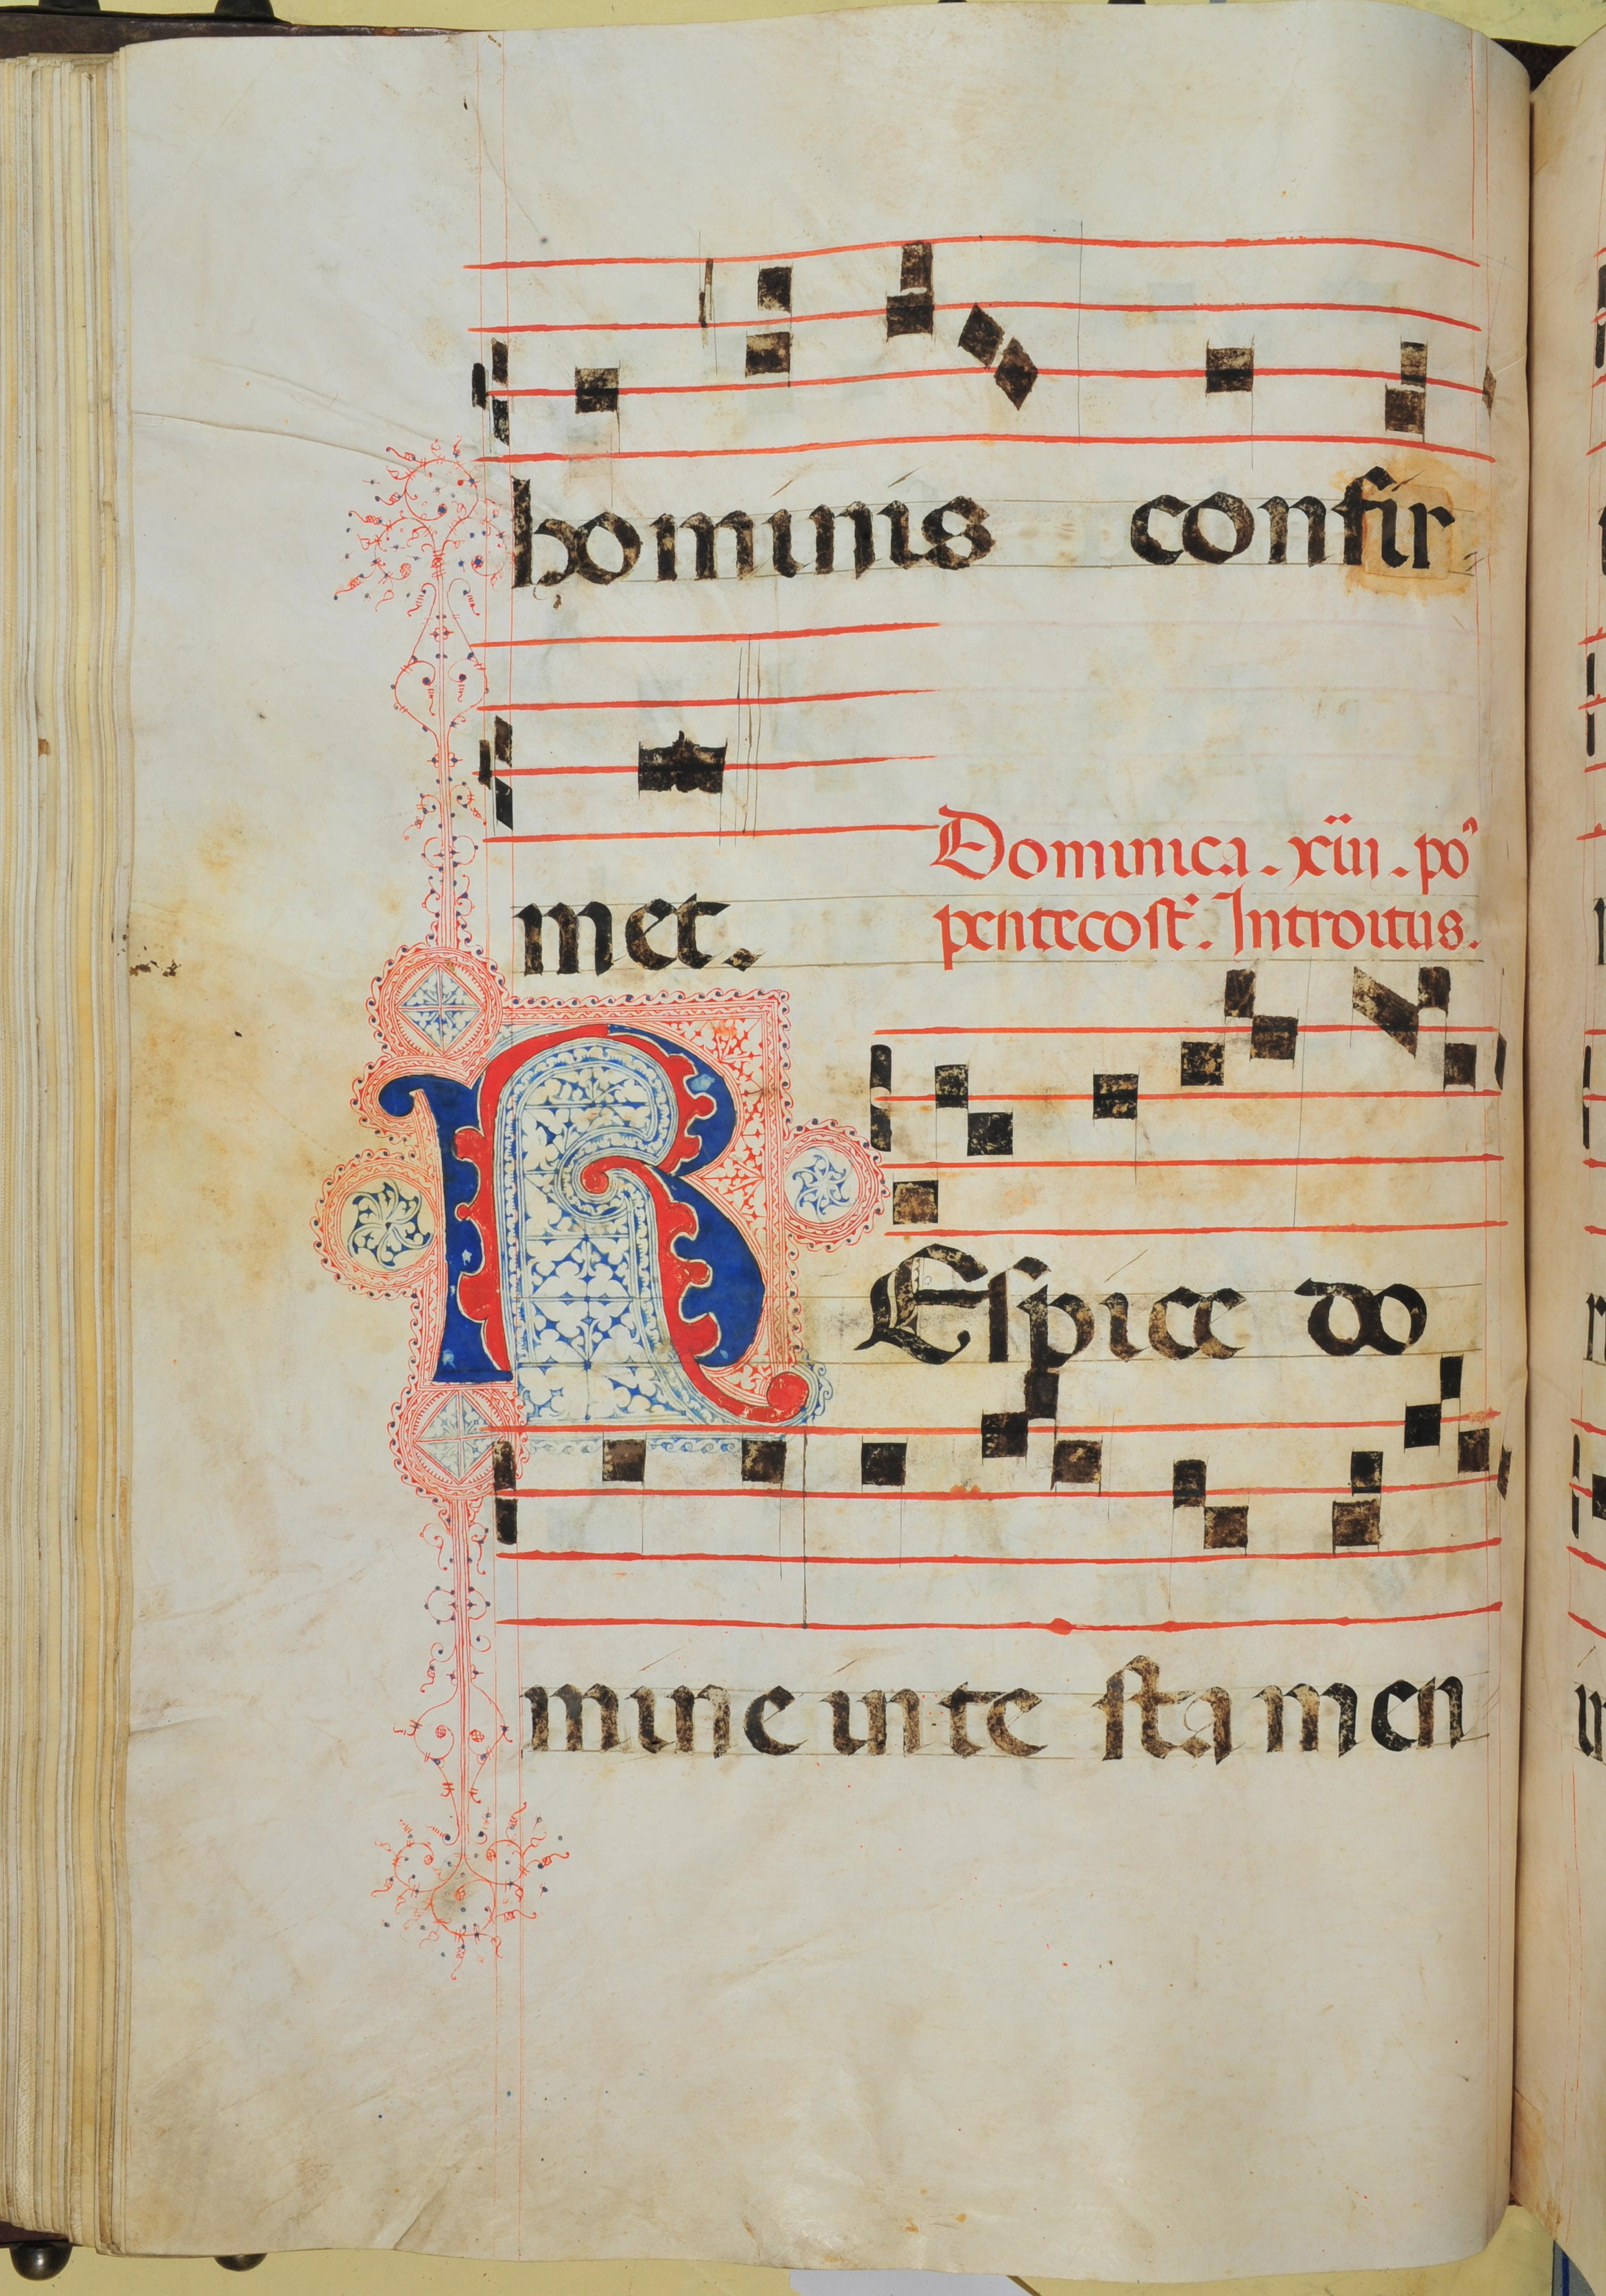 hominis confir
met.
Dominica. xiii. po
pentecost. Introitus.
REspice do
mine in te stamen